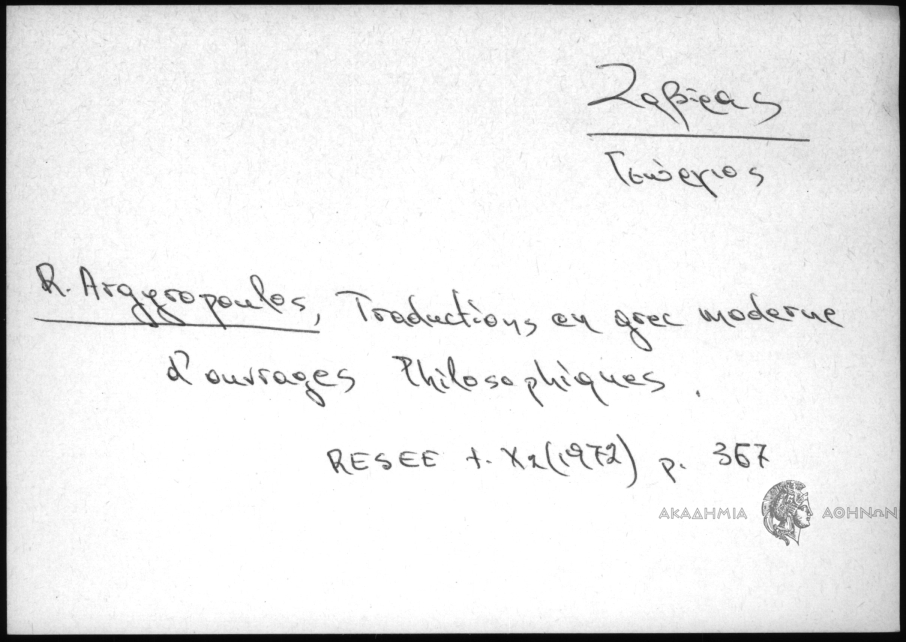 Ζαβίρας
Γεώργιος
R. Argyropoulos, Traductions en grec moderne
d'ouvrages Philosophiques.
RESEE t. X2 (1972) p. 367
ΑΚΑΔΗΜΙΑ ΑΘΗΝΩΝ